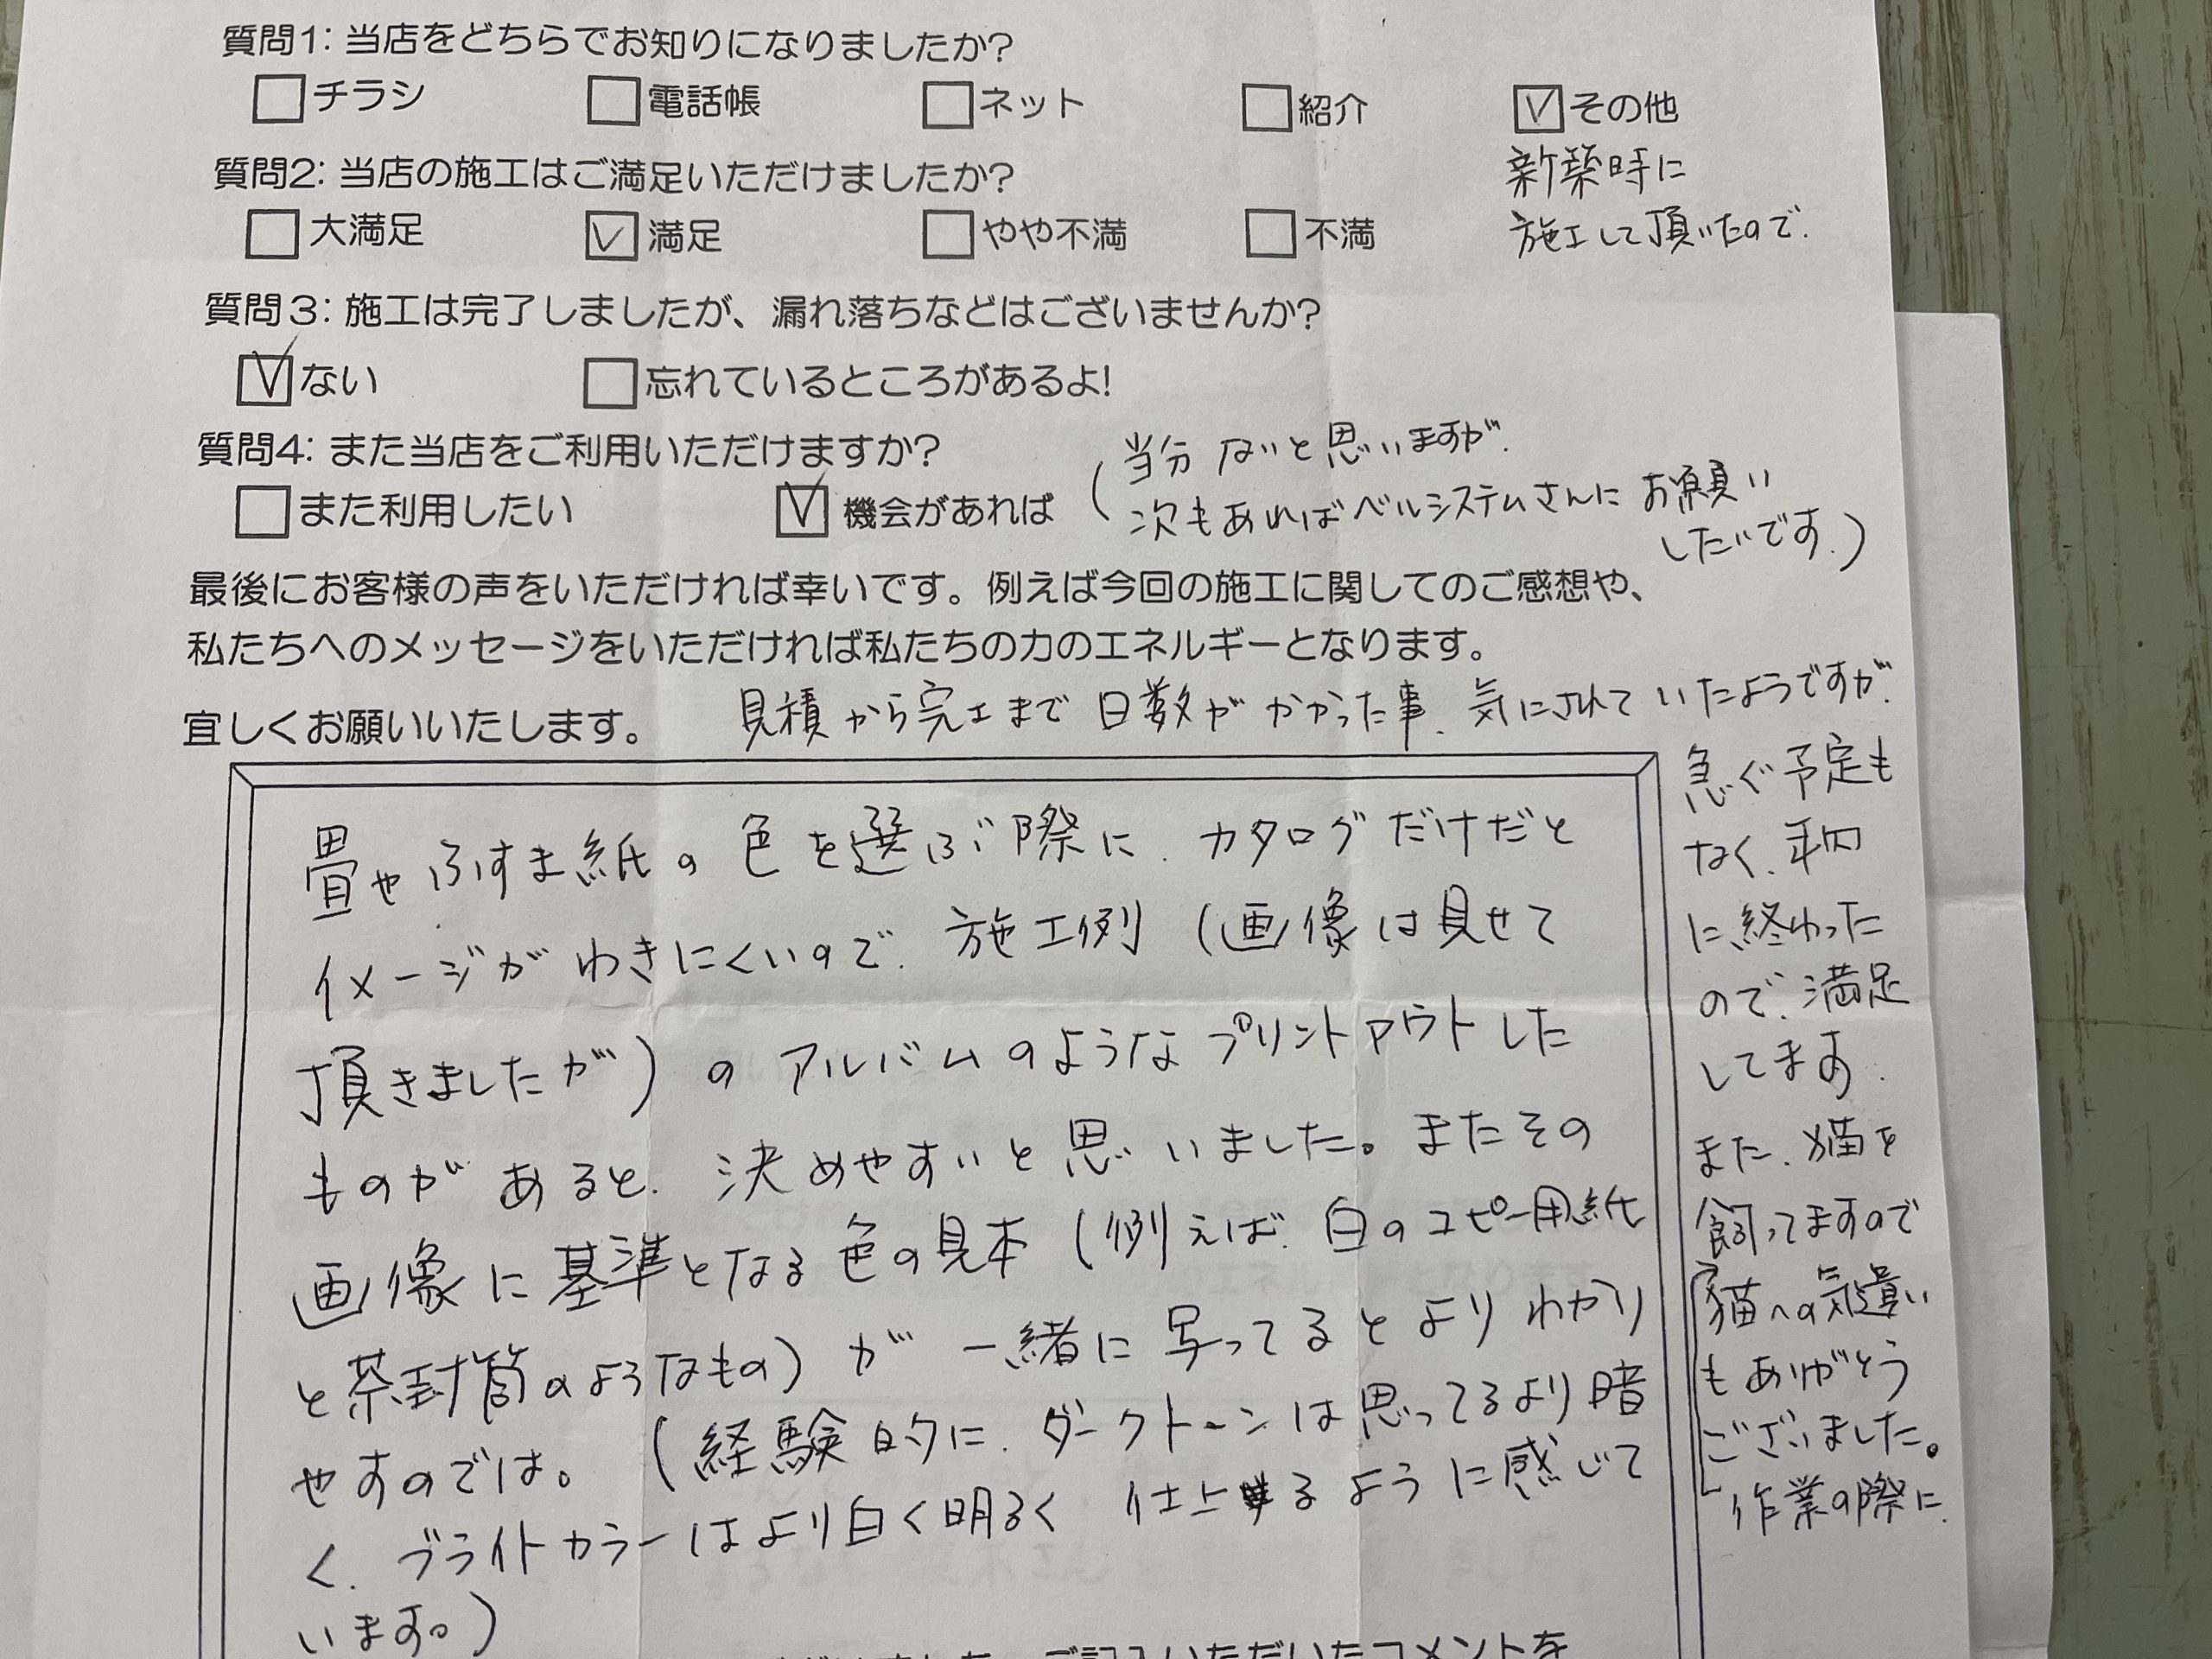 質問1: 当店をどちらでお知りになりましたか?
チラシ 電話帳 ネット 紹介 その他
新築時に
施工して頂いたので.
質問2: 当店の施工はご満足いただけましたか?
大満足 満足 やや不満 不満
質問3: 施工は完了しましたが、漏れ落ちなどはございませんか?
ない 忘れているところがあるよ!
質問4: また当店をご利用いただけますか?
また利用したい 機会があれば
(当分ないと思いますが.
次もあればベルシステムさんにお願い
したいです.)
最後にお客様の声をいただければ幸いです。例えば今回の施工に関してのご感想や、
私たちへのメッセージをいただければ私たちの力のエネルギーとなります。
宜しくお願いいたします。
畳やふすま紙の色を選ぶ際に.カタログだけだと
イメージがわきにくいので.施工例(画像は見せて
頂きましたが)のアルバムのようなプリントアウトした
ものがあると.決めやすいと思いました。またその
画像に基準となる色の見本(例えば.白のコピー用紙
と茶封筒のようなもの)が一緒に写ってるとよりわかり
やすのでは。(経験的に.ダークトーンは思ってるより暗
く.ブライトカラーはより白く明るく仕上るように感じて
います。)
見積から完工まで日数がかかった事.気にされていたようですが.
急ぐ予定も
なく.年内
に終わった
ので.満足
してます.
また.猫を
飼ってますので
猫への気遣い
もありがとう
ございました。
作業の際に.
ご記入いただいたコメントを